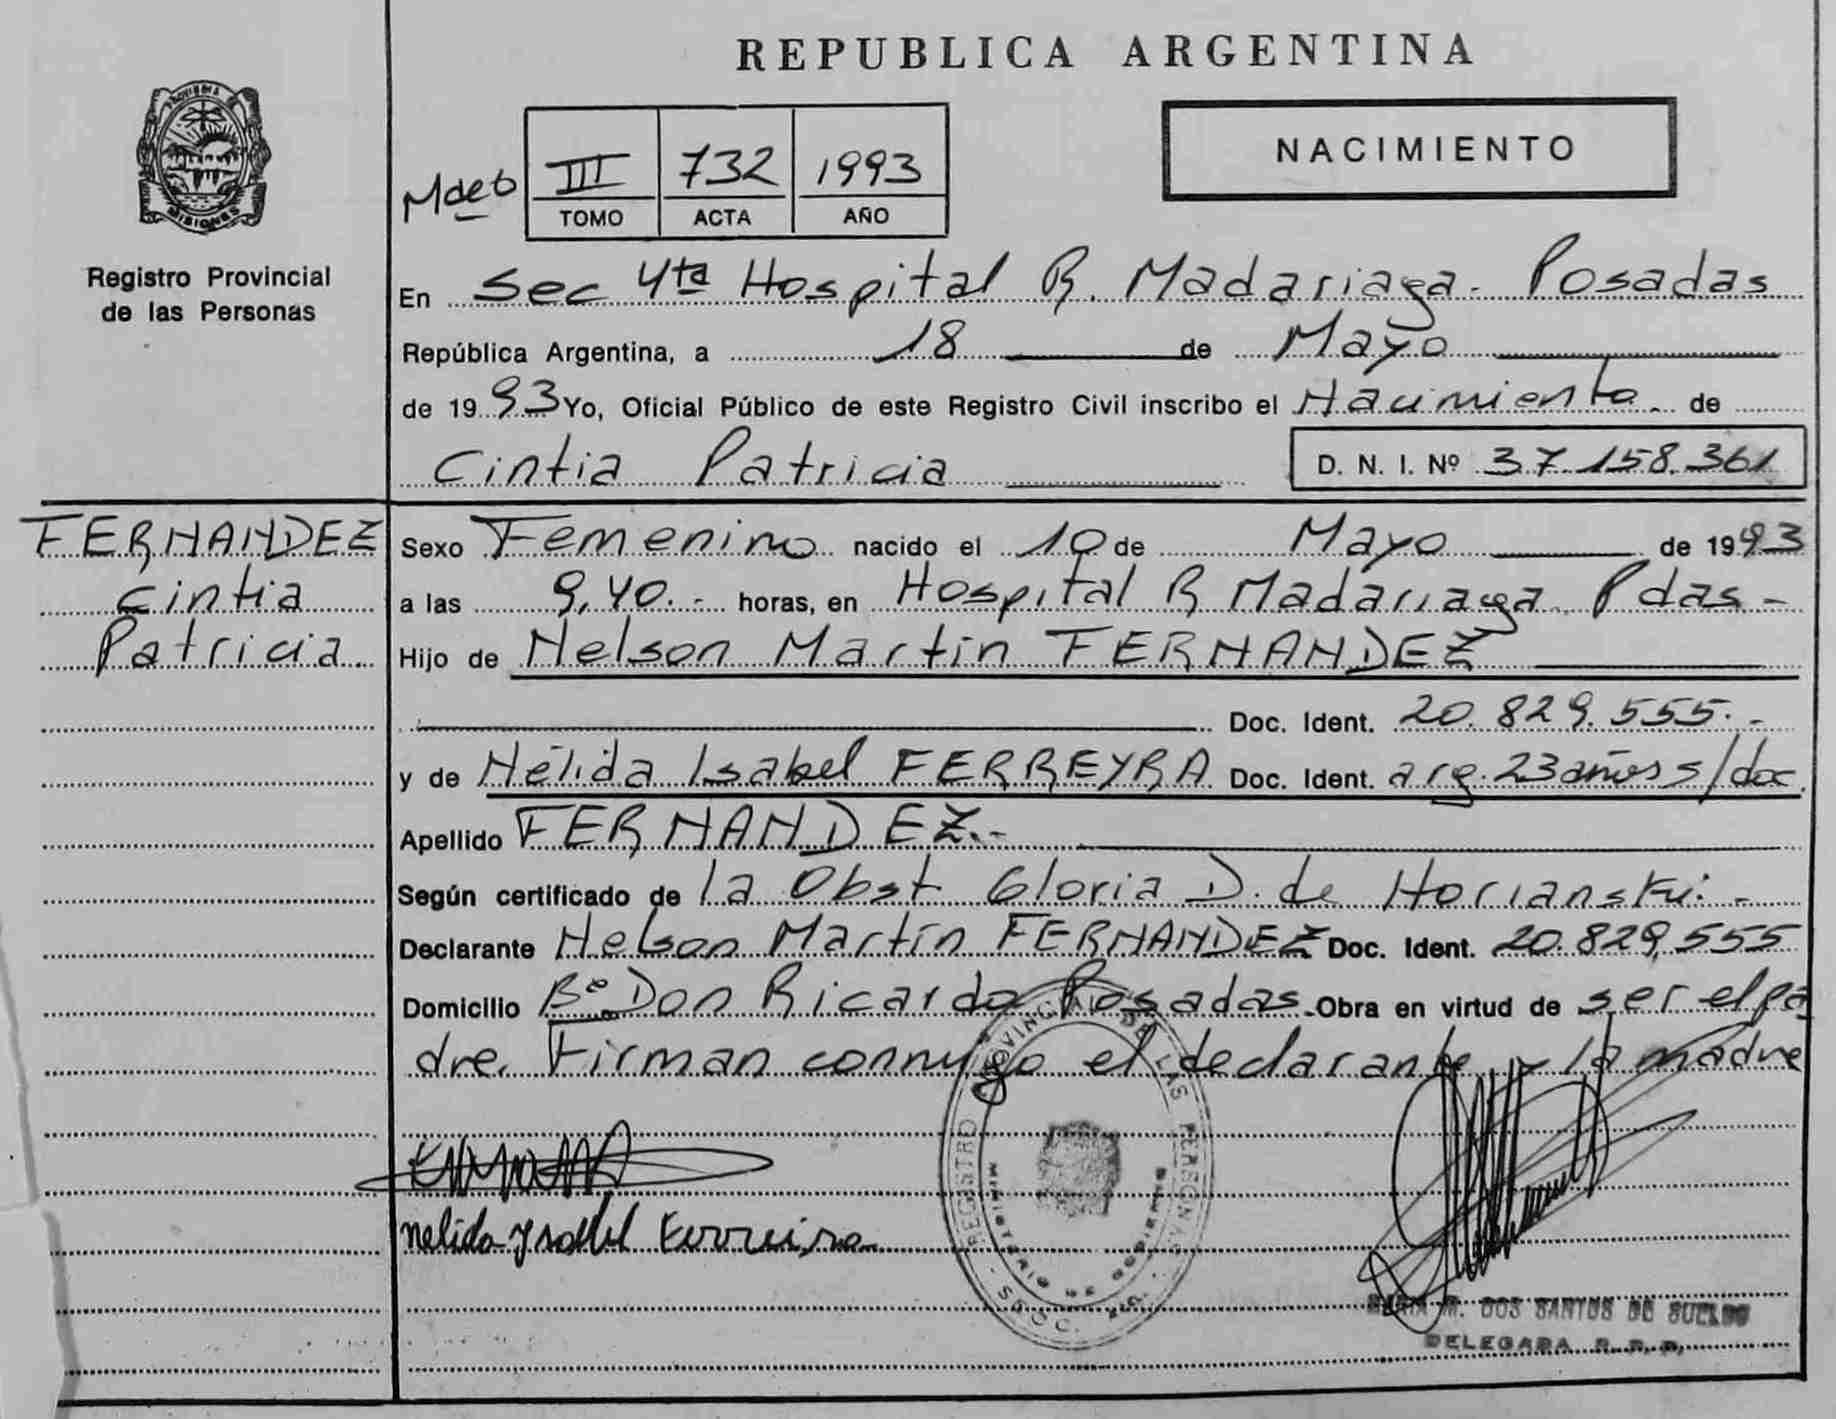 REPUBLICA ARGENTINA
PROVINCIA DE
MISIONES
Registro Provincial
de las Personas
III 732 1993
TOMO ACTA AÑO
NACIMIENTO
En Sec 4ta Hospital R. Madariaga. Posadas
República Argentina, a 18 de Mayo
de 1993 Yo, Oficial Público de este Registro Civil inscribo el Nacimiento de
Cintia Patricia D. N. I. Nº 37.158.361
FERNANDEZ
Cintia
Patricia
Sexo Femenino nacido el 10 de Mayo de 1993
a las 9,40.- horas, en Hospital R Madariaga Pdas-
Hijo de Nelson Martín FERNANDEZ
Doc. Ident. 20.829.555.-
y de Nélida Isabel FERREYRA Doc. Ident. arg. 23 años s/doc.
Apellido FERNANDEZ.-
Según certificado de la Obst Gloria D. de
Declarante Nelson Martín FERNANDEZ Doc. Ident. 20.829.555
Domicilio Bº Don Ricardo Posadas. Obra en virtud de ser el pa
dre. Firman conmigo el declarante y la madre
REGISTRO PROVINCIAL DE LAS PERSONAS
MINISTERIO DE GOBIERNO
Nelida Ysabel Ferreira
M. DOS SANTOS DE
DELEGADA R. P. P.